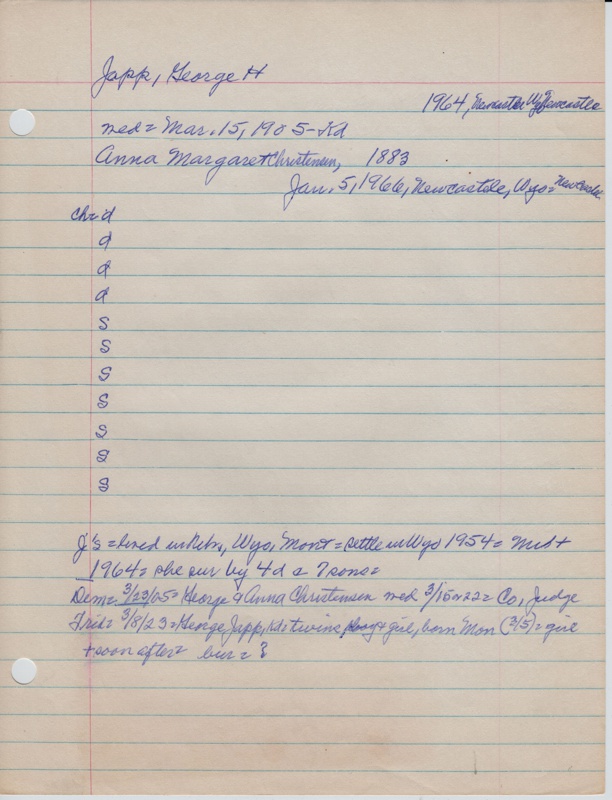 Japp, George H
1964, Newcastle Wyo = Newcastle
med = Mar. 15, 1905 - Kd
Anna Margaret Christensen, 1883
Jan. 5, 1966, Newcastle, Wyo = Newcastle
ch = d
d
d
d
s
s
s
s
s
s
s
J's = lived in Nebr, Wyo, Mont = settle in Wyo 1954 =
1964 = she sur by 4 d & 7 sons =
Dem = 3/23/05 = George & Anna Christensen med 3/15 or 22 = Co, Judge
3/8/23 = George Japp, Kd = twins, boy & girl, born Mon (3/5) = girl
+ soon after = bur = ?